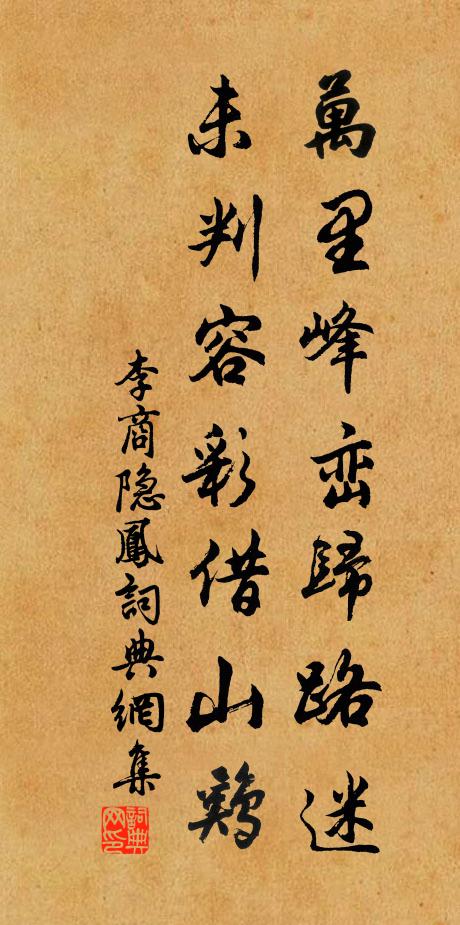 萬里峰峦歸路迷
未判容彩借山鷄
李商隐鳳詞典網集
詞典网印